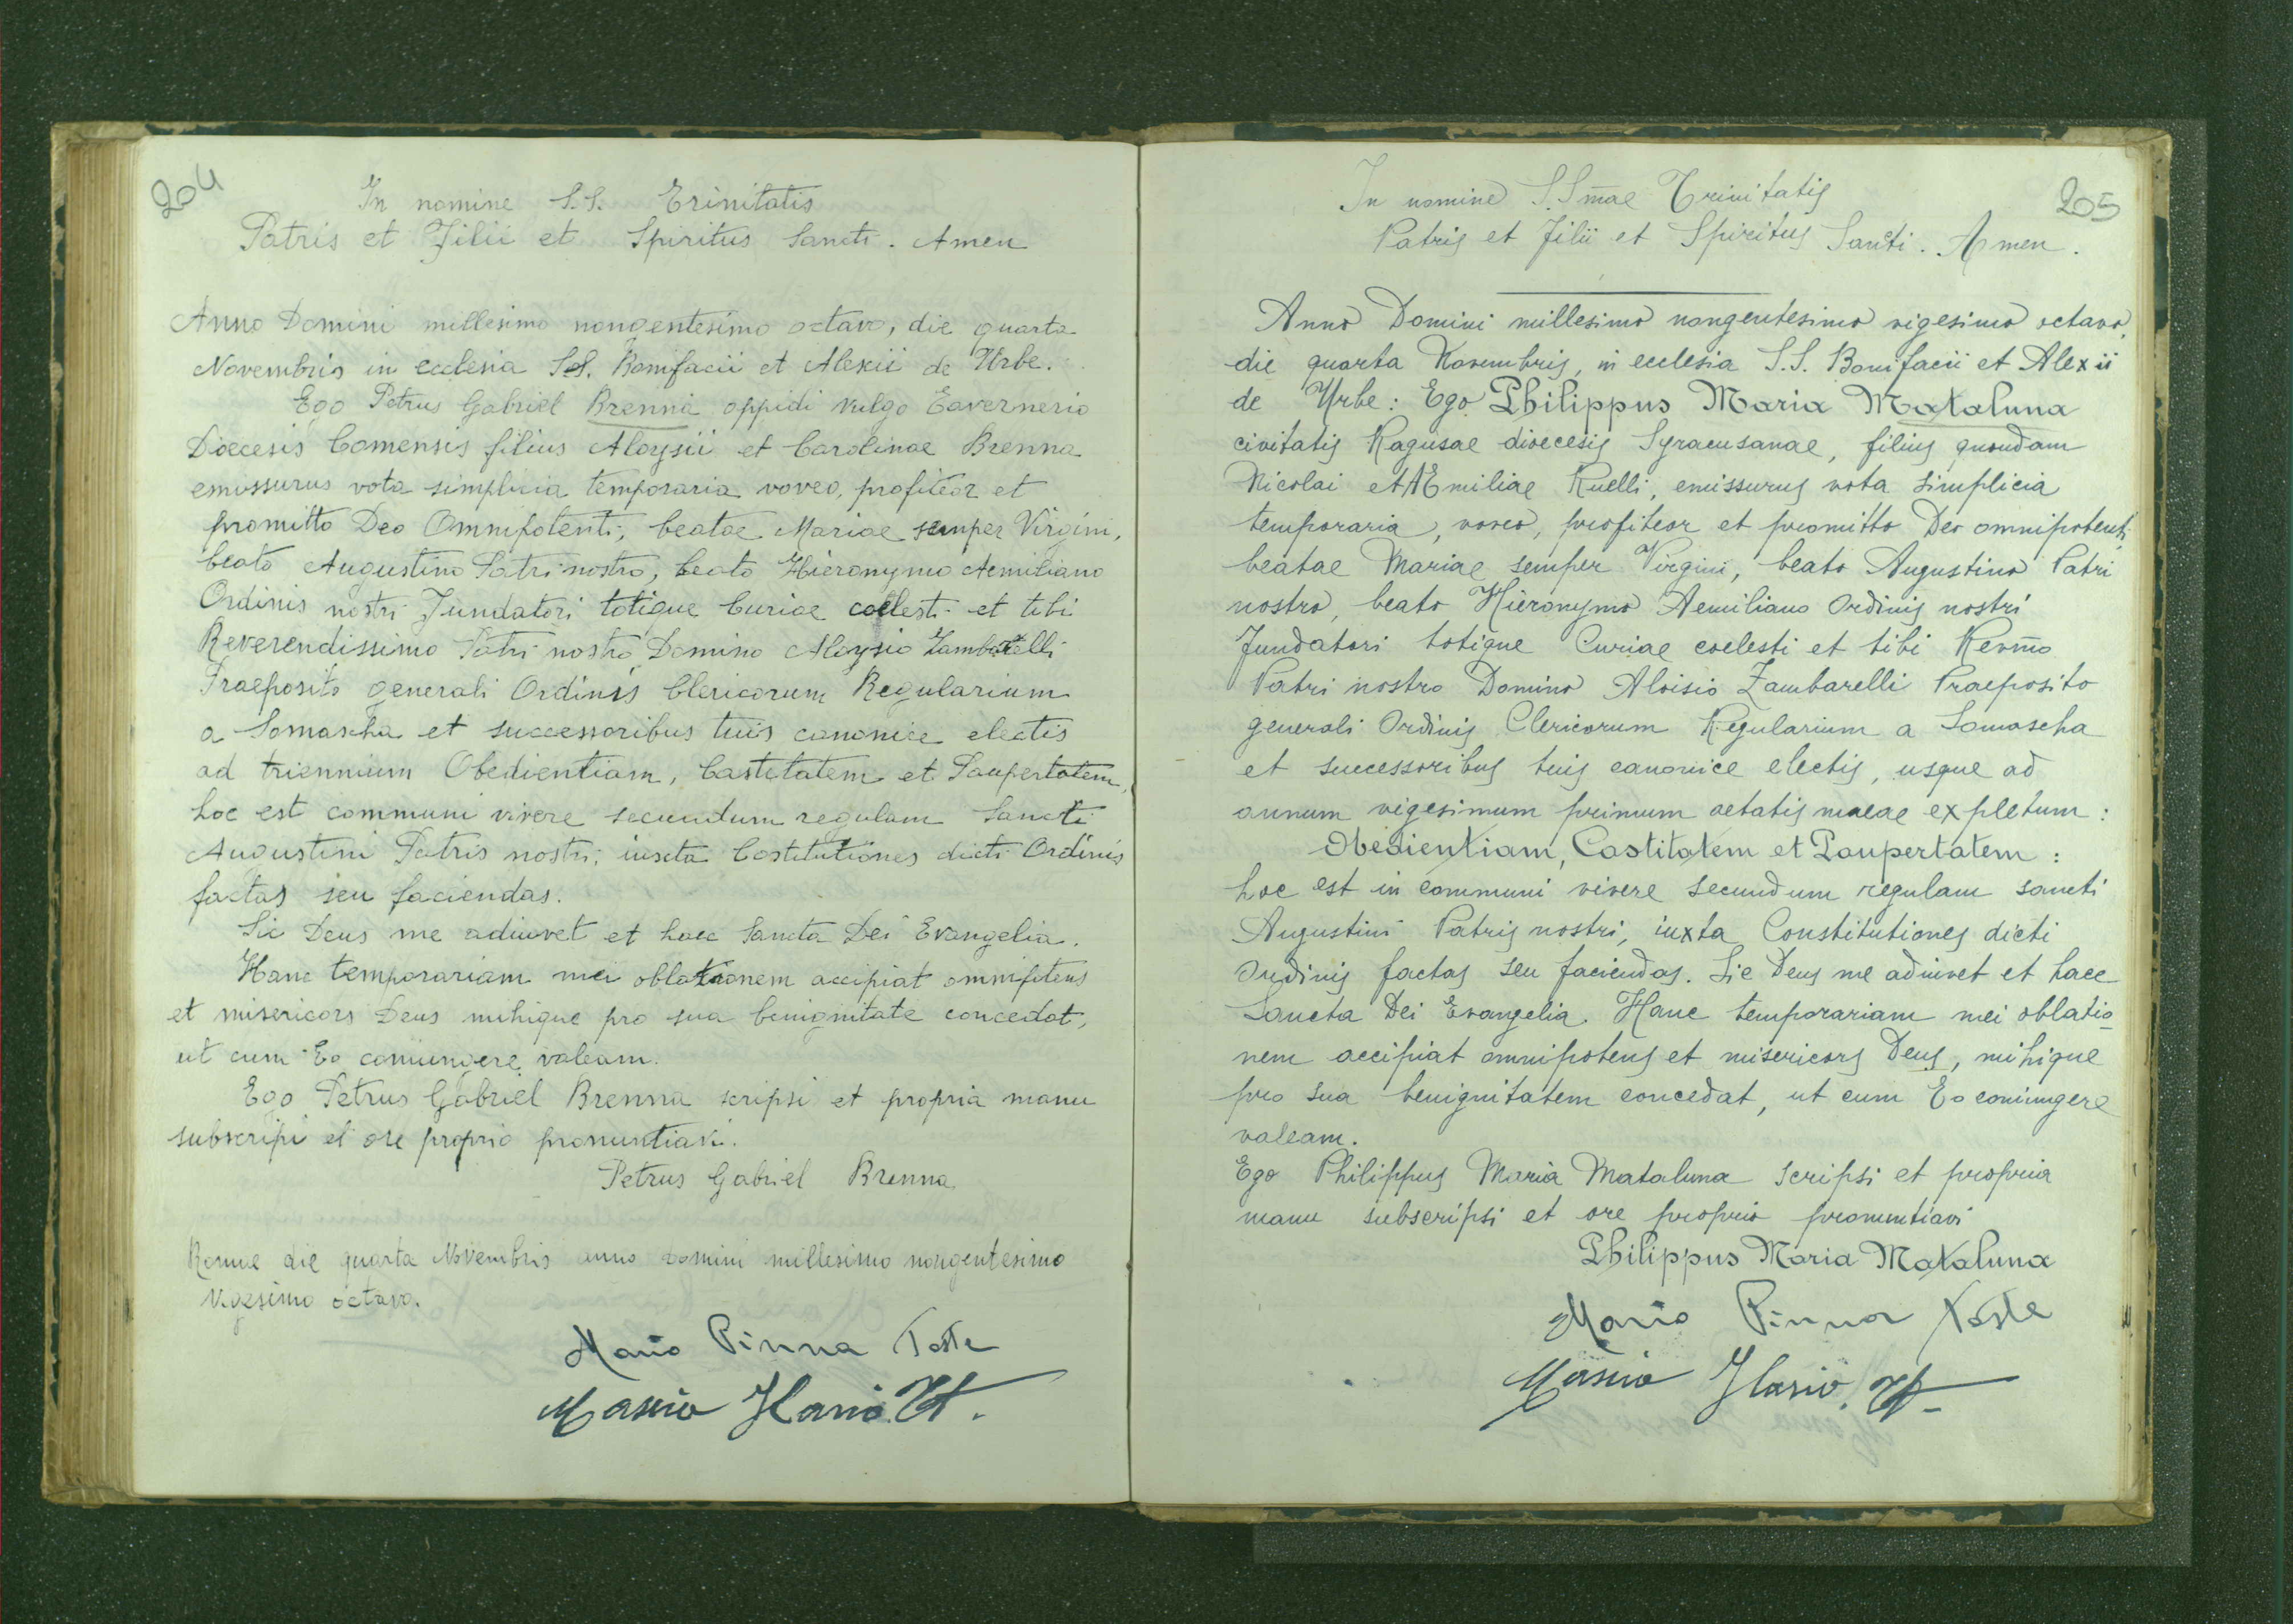 204
In nomine S.S. Trinitatis
Patris et Filii et Spiritus Sancti. Amen
Anno Domini millesimo nongentesimo octavo, die quarta
Novembris in ecclesia SS. Bonifacii et Alexii de Urbe.
Ego Petrus Gabriel Brenna oppidi vulgo Tavernerio
Dioecesis Comensis filius Aloysii et Carolinae Brenna
emissurus vota simplicia temporaria voveo, profiteor et
promitto Deo Omnipotenti, beatae Mariae semper Virgini,
beato Augustino Patri nostro, beato Hieronymo Aemiliano
Ordinis nostri Fundatori totique Curiae coelesti et tibi
Reverendissimo Patri nostro Domino Aloysio Zambarelli
Praeposito generali Ordinis Clericorum Regularium
a Somascha et successoribus tuis canonice electis
ad triennium Obedientiam, Castitatem et Paupertatem,
hoc est communi vivere secundum regulam Sancti
Augustini Patris nostri, iuxta Costitutiones dicti Ordinis
factas seu faciendas.
Sic Deus me adiuvet et haec Sancta Dei Evangelia.
Hanc temporariam mei oblationem accipiat omnipotens
et misericors Deus mihique pro sua benignitate concedat,
ut cum Eo coniungere valeam.
Ego Petrus Gabriel Brenna scripsi et propria manu
subscripi et ore proprio pronuntiavi.
Petrus Gabriel Brenna
Romae die quarta Novembris anno domini millesimo nongentesimo
vigesimo octavo.
Mario Pinna Teste
Mascia Ilario Tt.
205
In nomine S.Smae Trinitatis
Patris et Filii et Spiritus Sancti. Amen.
Anno Domini millesimo nongentesimo vigesimo octavo,
die quarta Novembris, in ecclesia S.S. Bonifacii et Alexii
de Urbe: Ego Philippus Maria Mataluna
civitatis Ragusae dioecesis Syracusanae, filius quondam
Nicolai et AEmiliae Ruelli, emissurus vota simplicia
temporaria, voveo, profiteor et promitto Deo omnipotenti,
beatae Mariae semper Virgini, beato Augustino Patri
nostro, beato Hieronymo Aemiliano Ordinis nostri
Fundatori totique Curiae coelesti et tibi Revmo
Patri nostro Domino Aloisio Zambarelli Praeposito
generali Ordinis Clericorum Regularium a Somascha
et successoribus tuis canonice electis, usque ad
annum vigesimum primum aetatis meae expletum:
Obedientiam, Castitatem et Paupertatem:
hoc est in communi vivere secundum regulam sancti
Augustini Patris nostri, iuxta Constitutiones dicti
Ordinis factas seu faciendas. Sic Deus me adiuvet et haec
Sancta Dei Evangelia. Hanc temporariam mei oblatio-
nem accipiat omnipotens et misericors Deus, mihique
pro sua benignitatem concedat, ut cum Eo coniungere
valeam.
Ego Philippus Maria Mataluna scripsi et propria
manu subscripsi et ore proprio pronuntiavi
Philippus Maria Mataluna
Mario Pinna Teste
Mascia Ilario